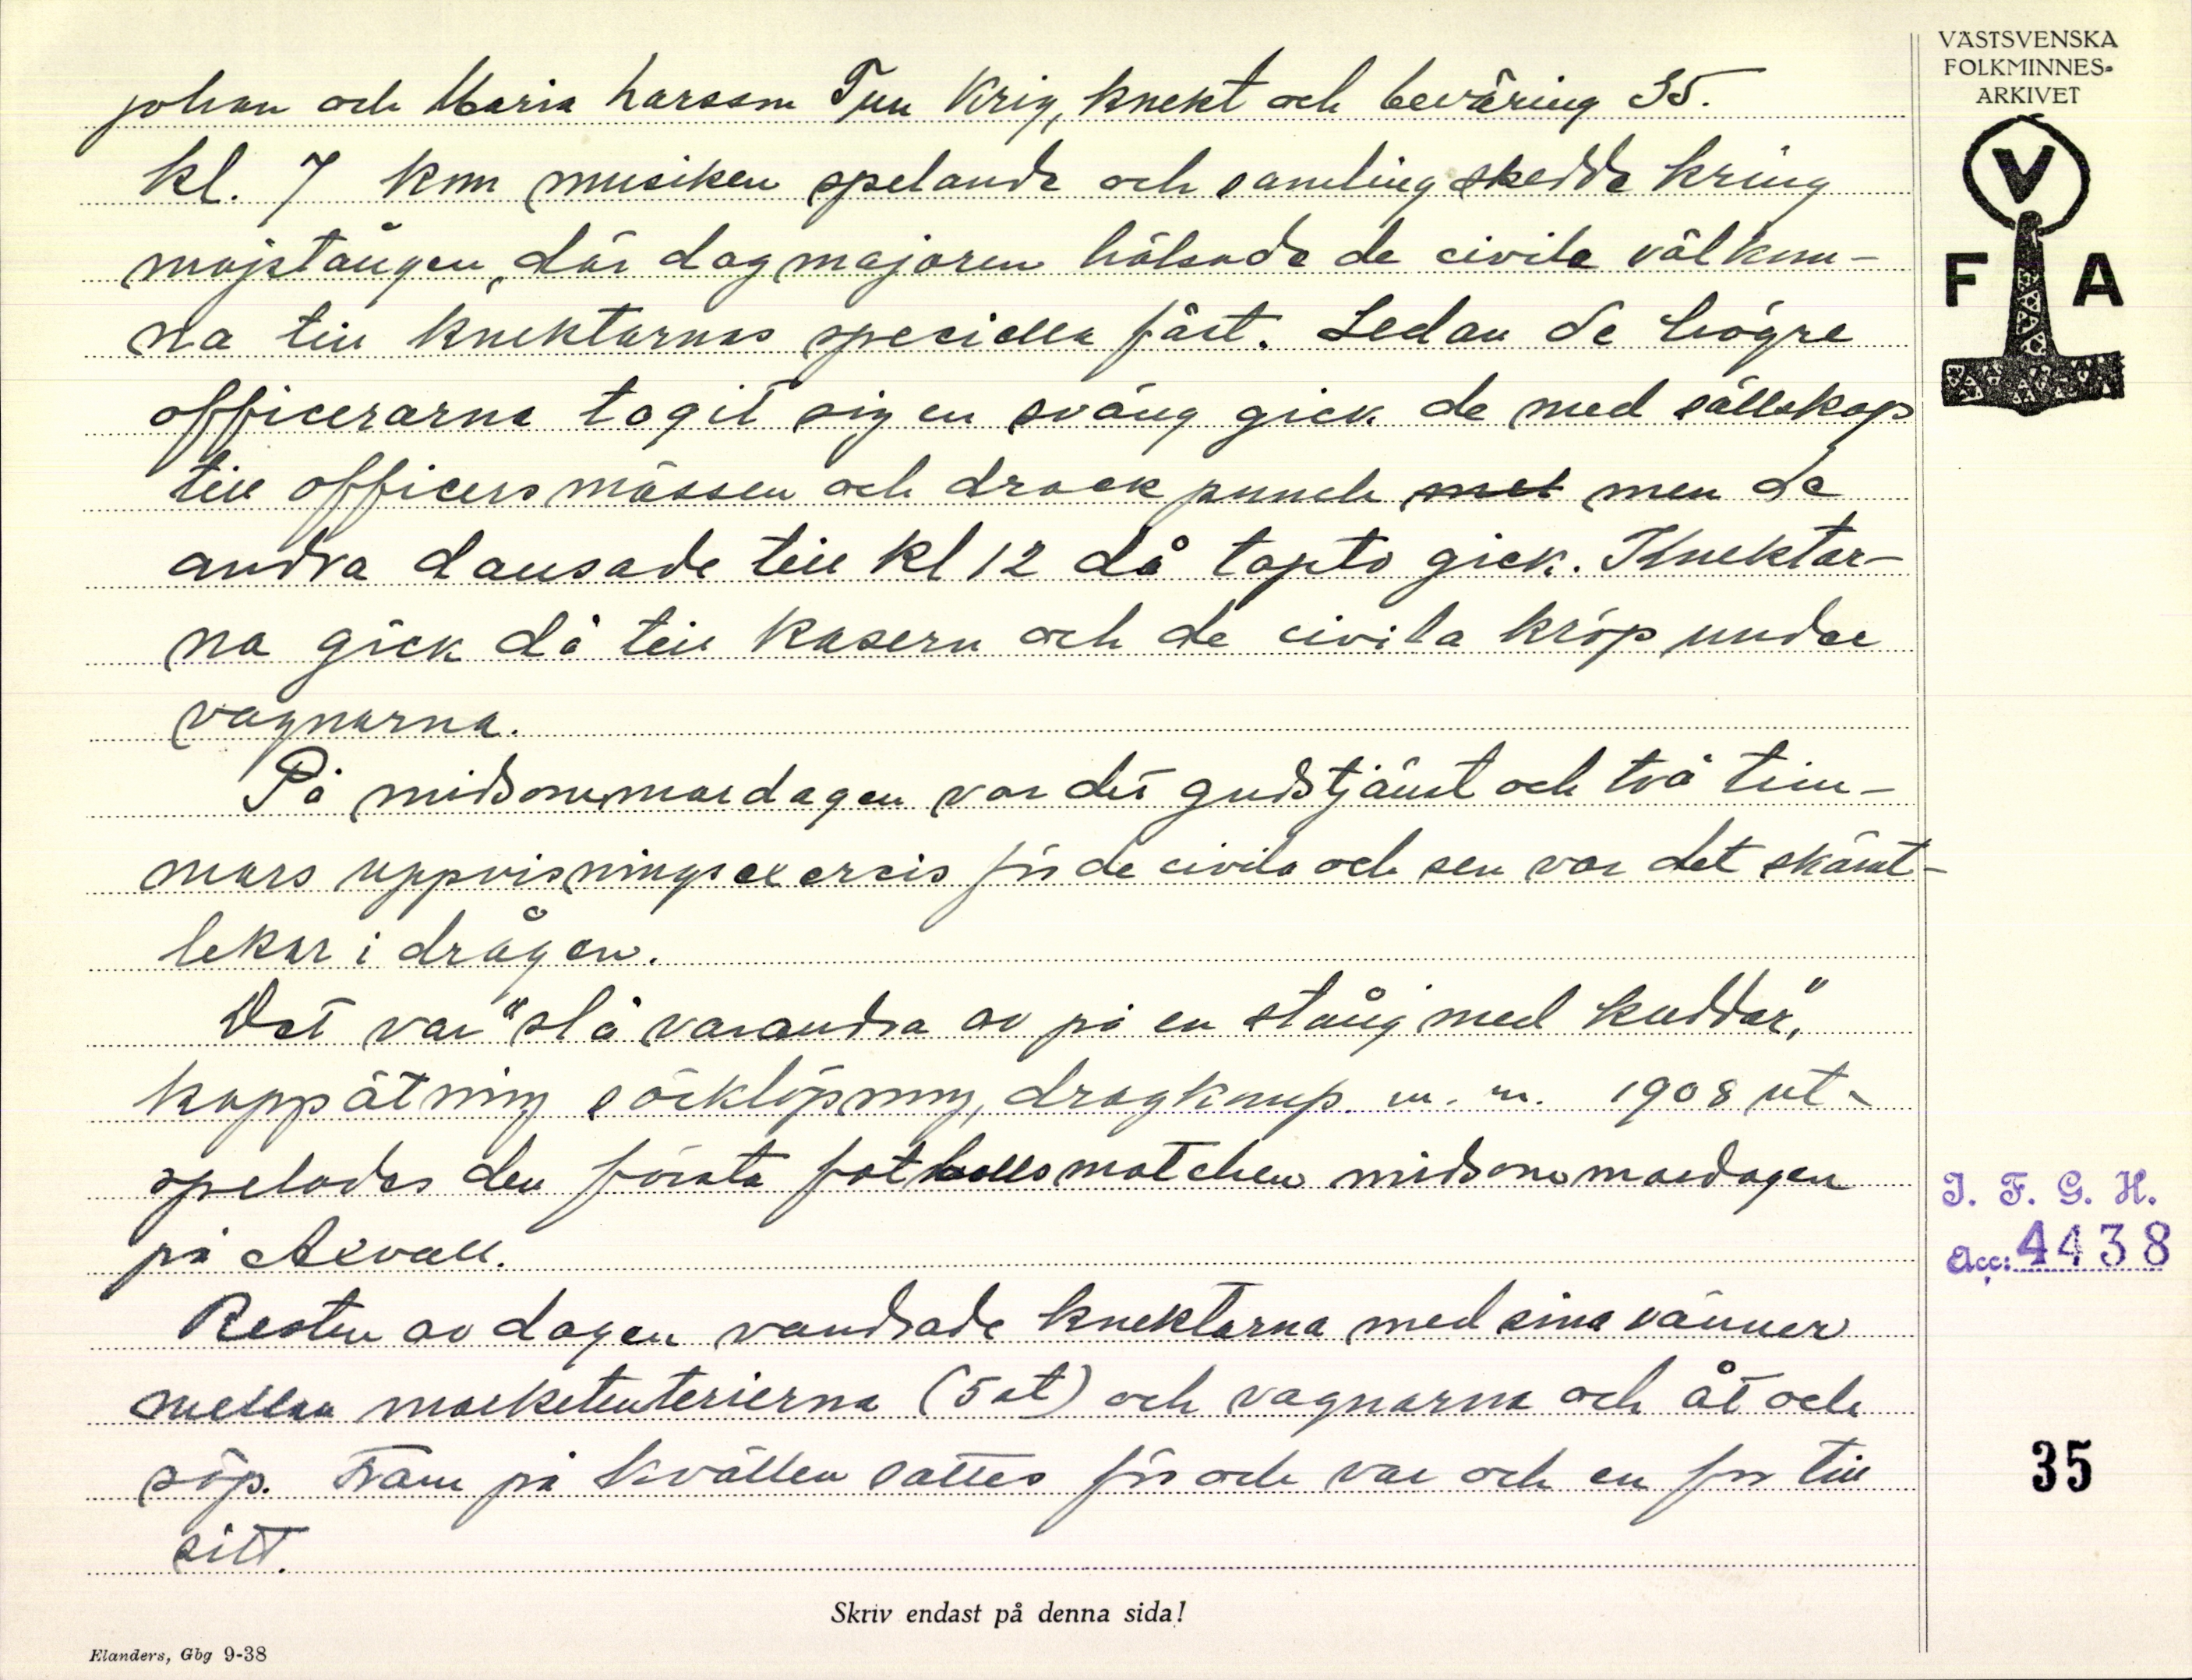 VÄSTSVENSKA
FOLKMINNES-
ARKIVET
V
F A
Johan och Maria Larsson Tun Krig, knekt och beväring 35.
kl. 7 kom musiken spelande och samling skedde kring
majstången, där dagmajoren hälsade de civila välkom-
na till knektarnas speciella fäst. Sedan de högre
officerarna tagit sig en sväng gick de med sällskap
till officersmässen och drack punch met men de
andra dansade till kl 12 då tapto gick. Knektar-
na gick då till kasern och de civila kröp under
vagnarna.
På midsommardagen var det gudstjänst och två tim-
mars uppvisningsexersis för de civila och sen var det skämt-
lekar i drågen.
Det var "slå varandra av på en stång med kuddar",
kappätning säcklöpning, dragkamp m. m. 1908 ut-
spelades den första fotbollsmatchen midsommardagen
på Axvall.
Resten av dagen vandrade knektarna med sina vänner
mellan marketenterierna (5 st) och vagnarna och åt och
söp. Fram på kvällen sattes för och var och en for till
sitt.
I. F. G. H.
Acc: 4438
35
Skriv endast på denna sida!
Elanders, Gbg 9-38